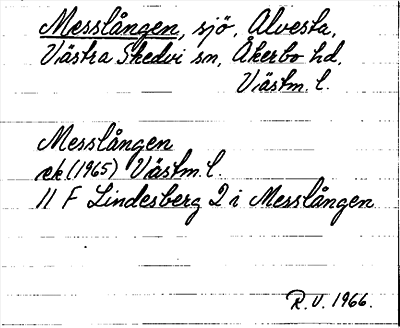 Messlången, sjö, Alvesta,
Västra Skedvi sn, Åkerbo hd,
Västm. l.
Messlången
ek (1965) Västm. l.
11 F Lindesberg 2 i Messlången
R.V. 1966.